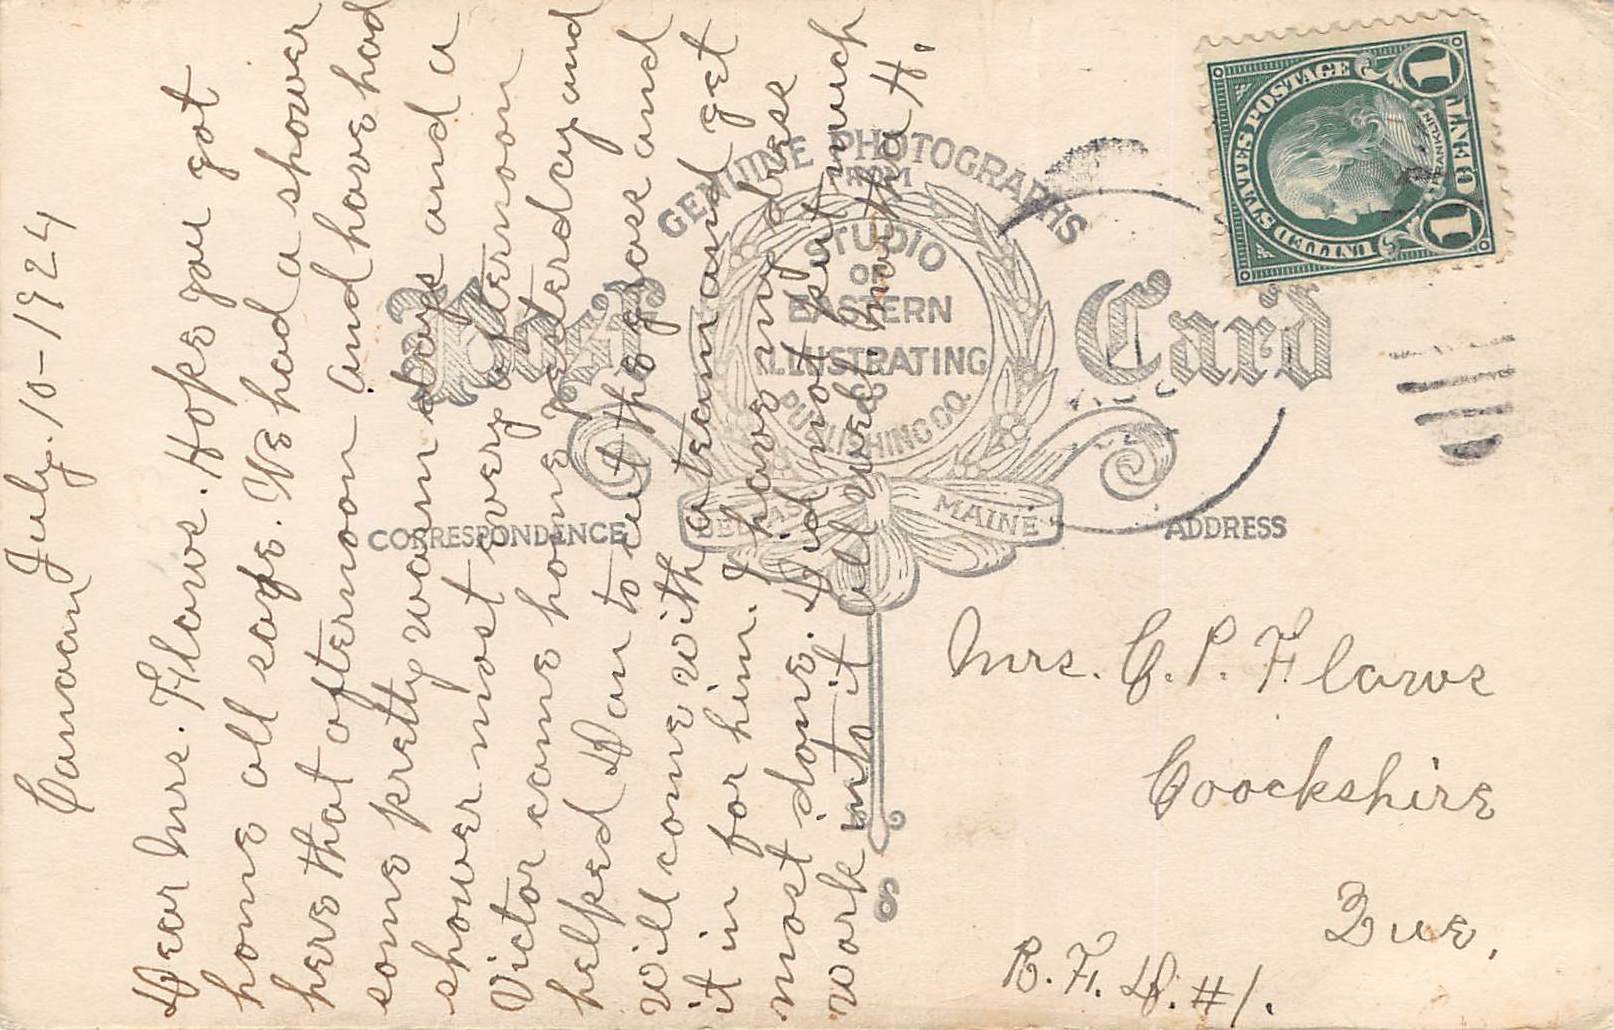 Canaan July. 10-1924
Dear Mrs. Flaws. Hope you got
home all safe. We had a shower
here that afternoon and have had
some pretty warm days and a
shower most every afternoon
Victor came home yesterday and
helped Dan to cut the grass and
will come with a team and get
it in for him. I have my dress
most done. Did not put much
work into it all well. Martha H.
GENUINE PHOTOGRAPHS
FROM
STUDIO
OF
EASTERN
ILLUSTRATING
&
PUBLISHING CO.
BELFAST MAINE
Post Card
CORRESPONDENCE
ADDRESS
UNITED STATES POSTAGE
FRANKLIN
1 CENT 1
Mrs. C. P. Flaws
Coockshire
Que.
R. F. D. #1.